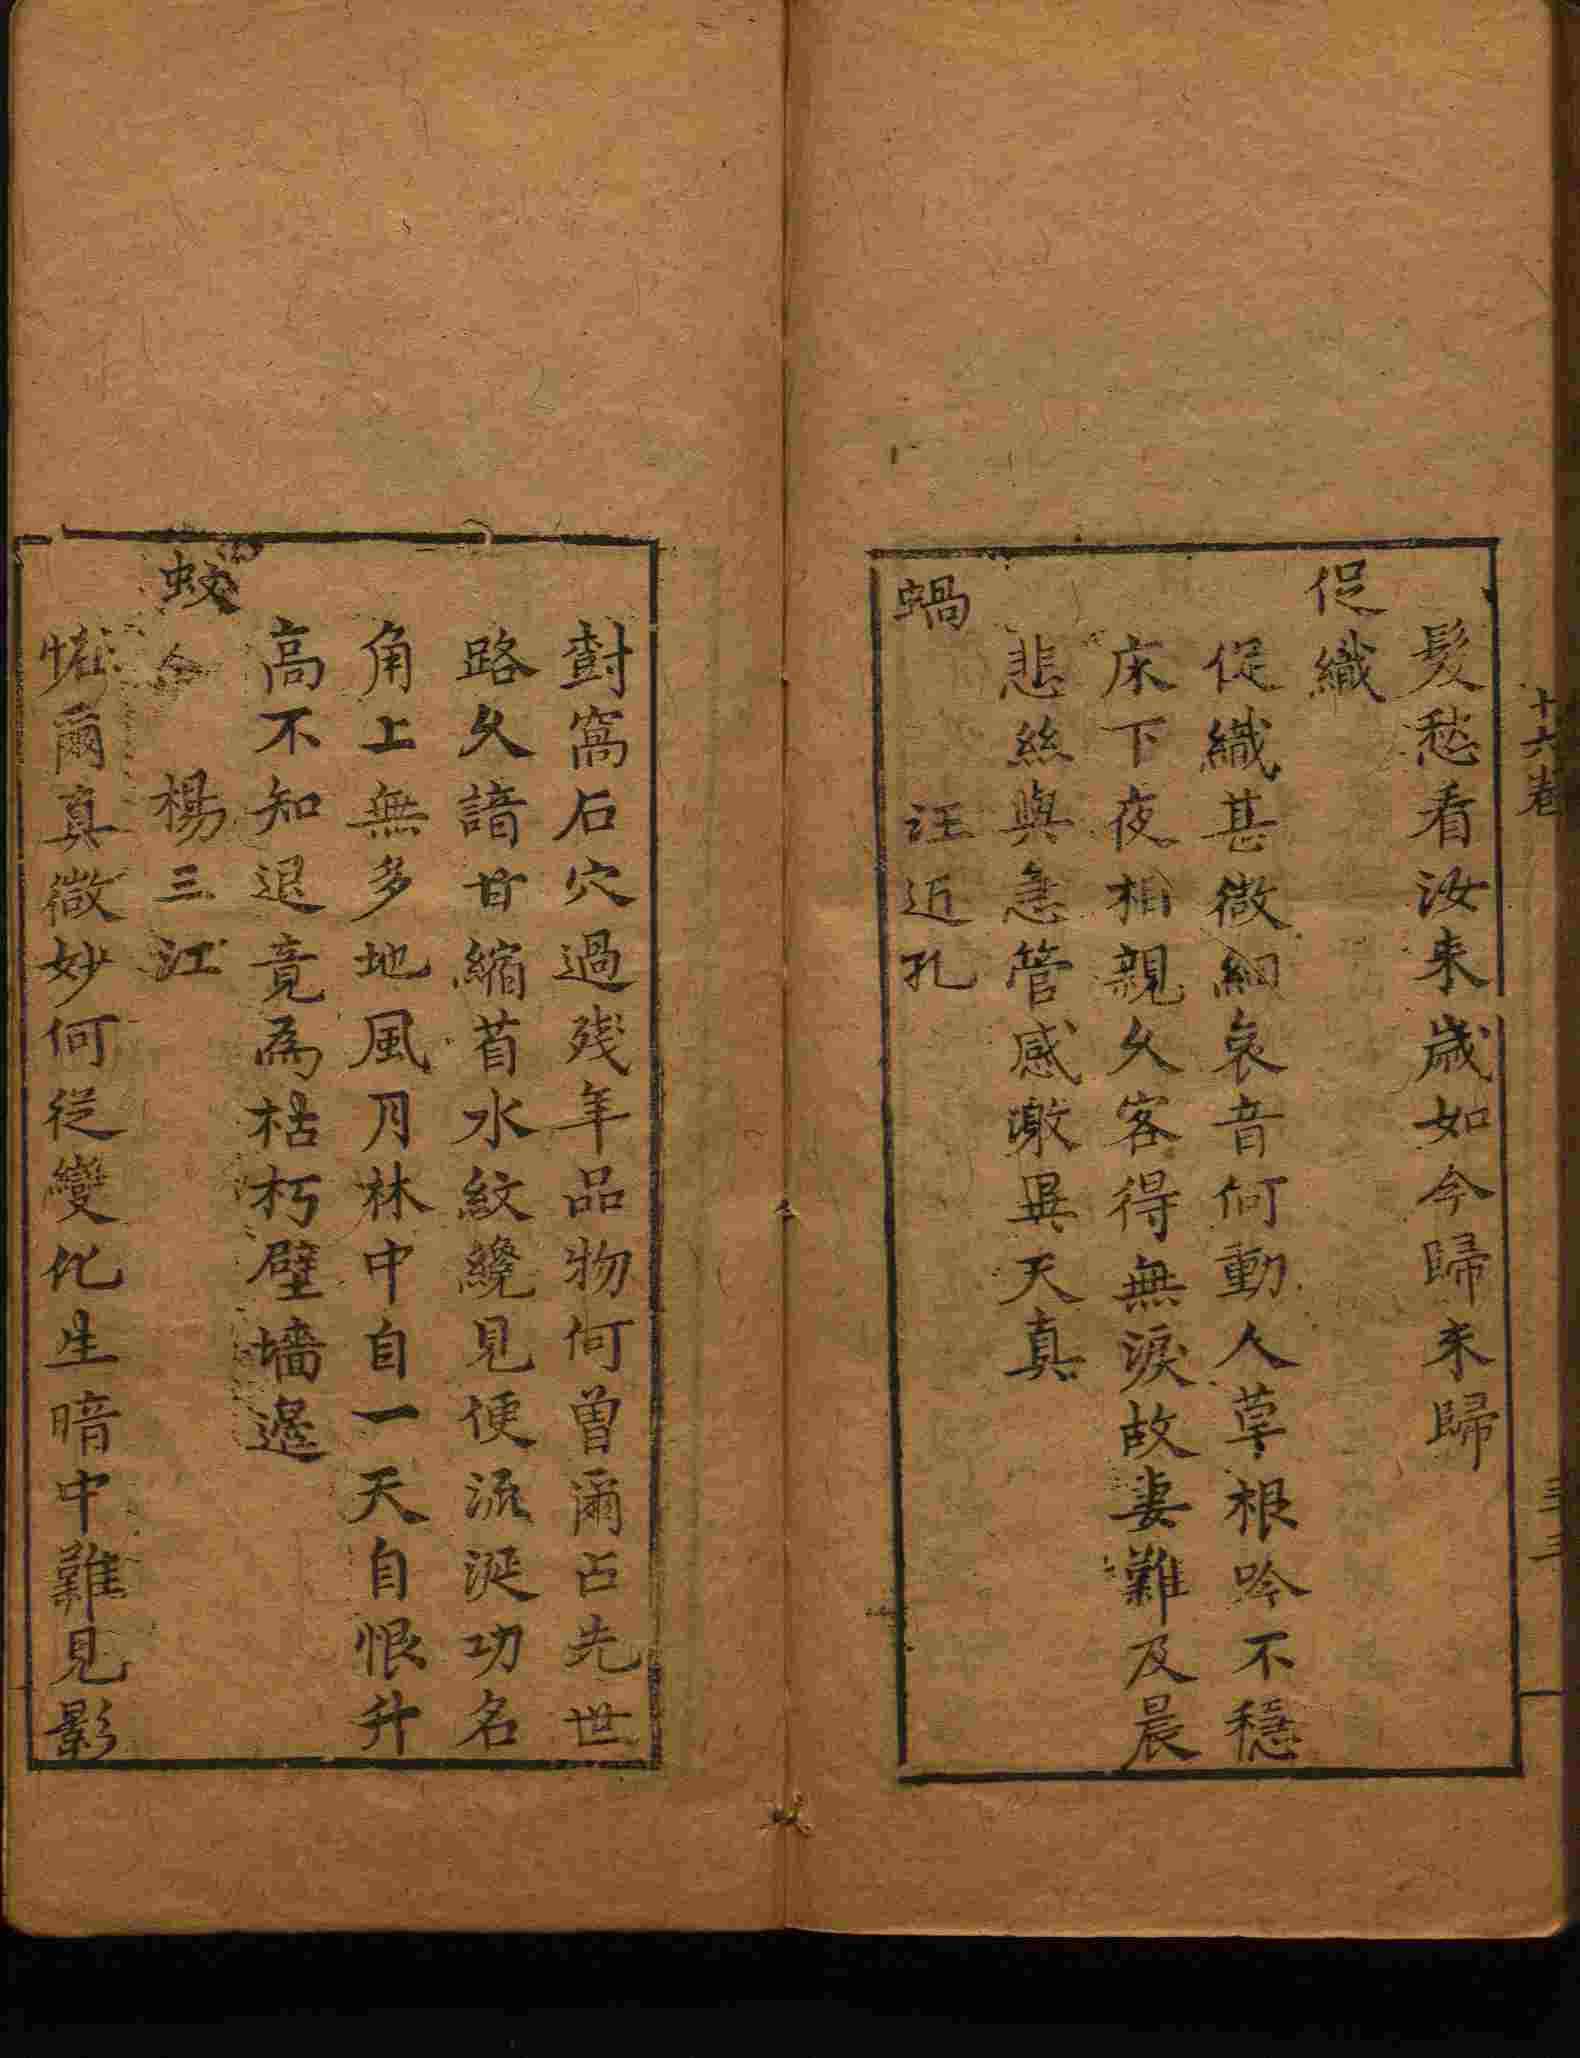 十六卷
三三
髮愁看汝來歲如今歸未歸
促織
促織甚微細哀音何動人草根吟不穩
床下夜相親久客得無淚故妻難及晨
悲絲與急管感激異天真
蝸 汪近孔
對窩石穴過殘年品物何曾爾占先世
路久諳甘縮首水紋纔見便流涎功名
角上無多地風月林中自一天自恨升
高不知退竟為枯朽壁墻邊
蚊 楊三江
爾真微妙何從變化生暗中難見影